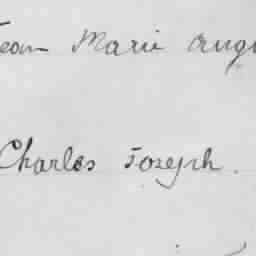 Jean Marie Augu
Charles Joseph.